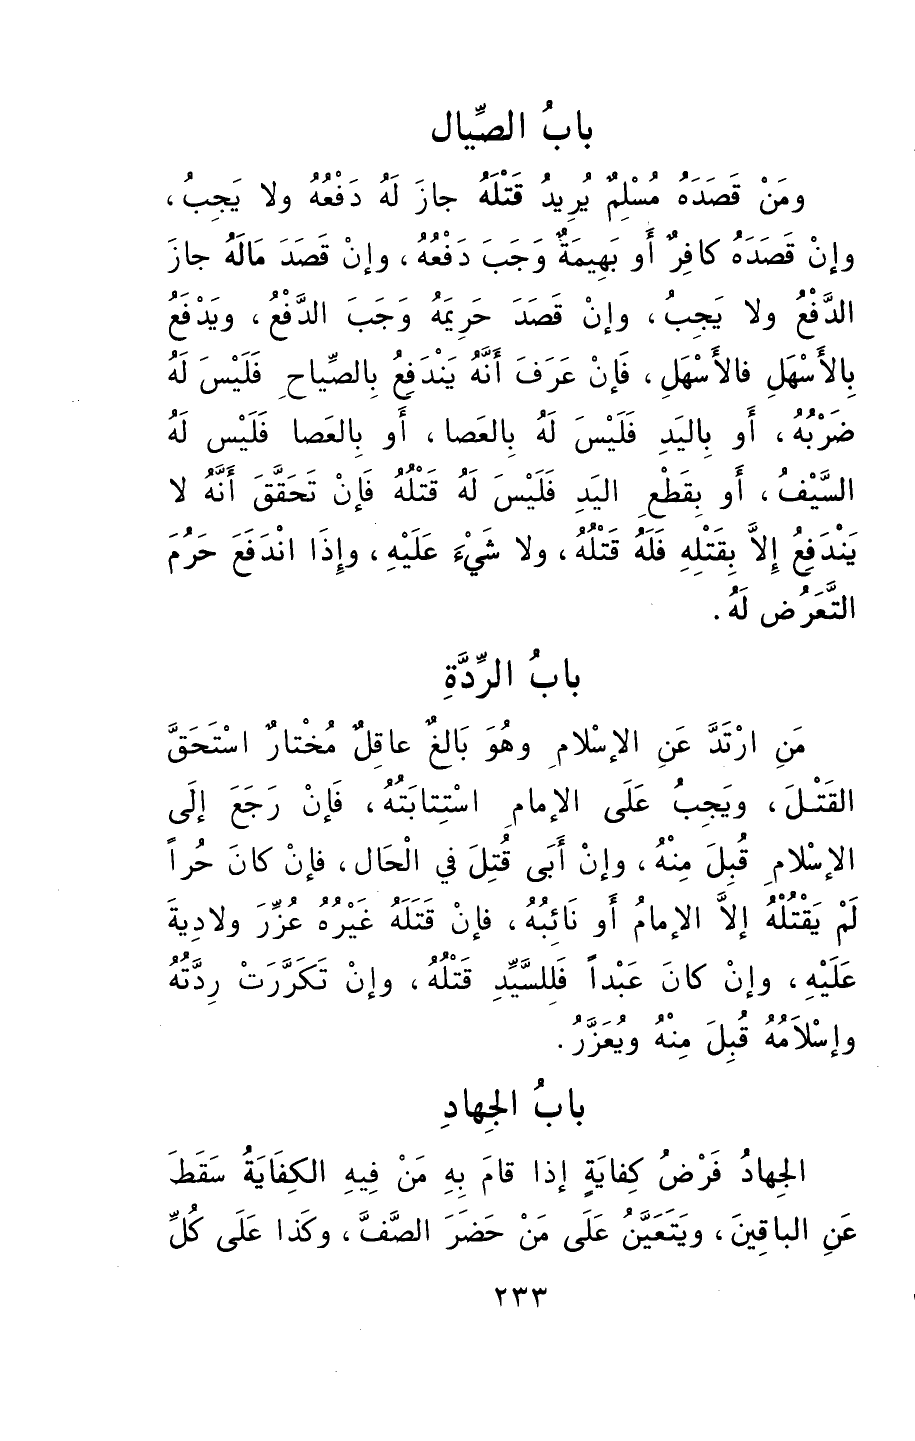 بابُ الصِّيال
ومَنْ قَصَدَهُ مُسْلِمٌ يُرِيدُ قَتْلَهُ جازَ لَهُ دَفْعُهُ ولا يَجِبُ،
وإنْ قَصَدَهُ كافِرٌ أو بَهِيمَةٌ وَجَبَ دَفْعُهُ، وإنْ قَصَدَ مَالَهُ جازَ
الدَّفْعُ ولا يَجِبُ، وإنْ قَصَدَ حَرِيمَهُ وَجَبَ الدَّفْعُ، ويَدْفَعُ
بِالأَسْهَلِ فالأَسْهَلِ، فَإنْ عَرَفَ أَنَّهُ يَنْدَفِعُ بِالصِّياحِ فَلَيْسَ لَهُ
ضَرْبُهُ، أَو بِاليَدِ فَلَيْسَ لَهُ بِالعَصا، أَو بِالعَصا فَلَيْس لَهُ
السَّيْفُ، أَو بِقَطْعِ اليَدِ فَلَيْسَ لَهُ قَتْلُهُ فَإنْ تَحَقَّقَ أَنَّهُ لا
يَنْدَفِعُ إِلاَّ بِقَتْلِهِ فَلَهُ قَتْلُهُ، ولا شَيْءَ عَلَيْهِ، وإِذَا انْدَفَعَ حَرُمَ
التَّعَرُض لَهُ.
بابُ الرِّدَّةِ
مَنِ ارْتَدَّ عَنِ الإسْلامِ وهُوَ بَالِغٌ عاقِلٌ مُخْتارٌ اسْتَحَقَّ
القَتْلَ، ويَجِبُ عَلَى الإمامِ اسْتِتابَتُهُ، فَإنْ رَجَعَ إلَى
الإسْلامِ قُبِلَ مِنْهُ، وإنْ أَبَى قُتِلَ في الْحَال، فإنْ كانَ حُراً
لَمْ يَقْتُلْهُ إلاَّ الإمامُ أَو نَائِبُهُ، فإنْ قَتَلَهُ غَيْرُهُ عُزِّرَ ولادِيةَ
عَلَيْهِ، وإنْ كانَ عَبْداً فَلِلسَّيِّدِ قَتْلُهُ، وإنْ تَكَرَّرَتْ رِدَّتُهُ
وإسْلاَمُهُ قُبِلَ مِنْهُ ويُعَزَّرُ.
بابُ الجِهادِ
الجِهادُ فَرْضُ كِفايَةٍ إذا قامَ بِهِ مَنْ فِيهِ الكِفَايَةُ سَقَطَ
عَنِ الباقِينَ، ويَتَعَيَّنُ عَلَى مَنْ حَضَرَ الصَّفَّ، وكَذا عَلَى كُلِّ
٢٣٣